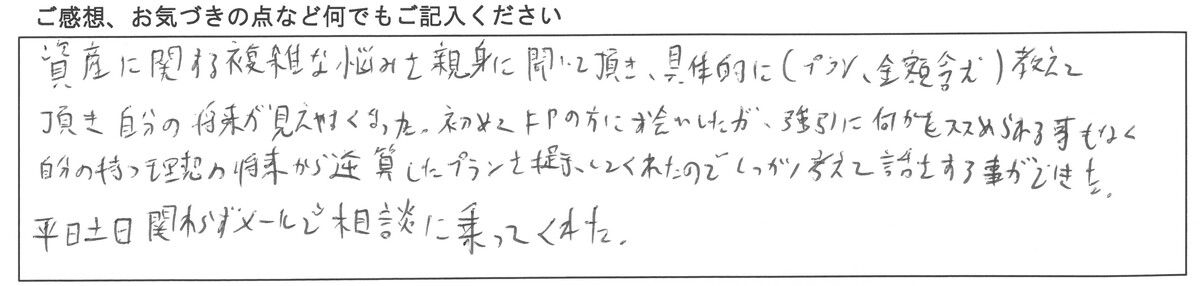 ご感想、お気づきの点など何でもご記入ください
資産に関する複雑な悩みを親身に聞いて頂き、具体的に(プラン、金額含む)教えて
頂き自分の将来が見えやすくなった。初めてFPの方にお会いしたが、強引に何かをススめられる事もなく
自分の持つ理想の将来から逆算したプランを提示してくれたのでしっかり考えて話をする事ができた。
平日土日関わらずメールで相談に乗ってくれた。